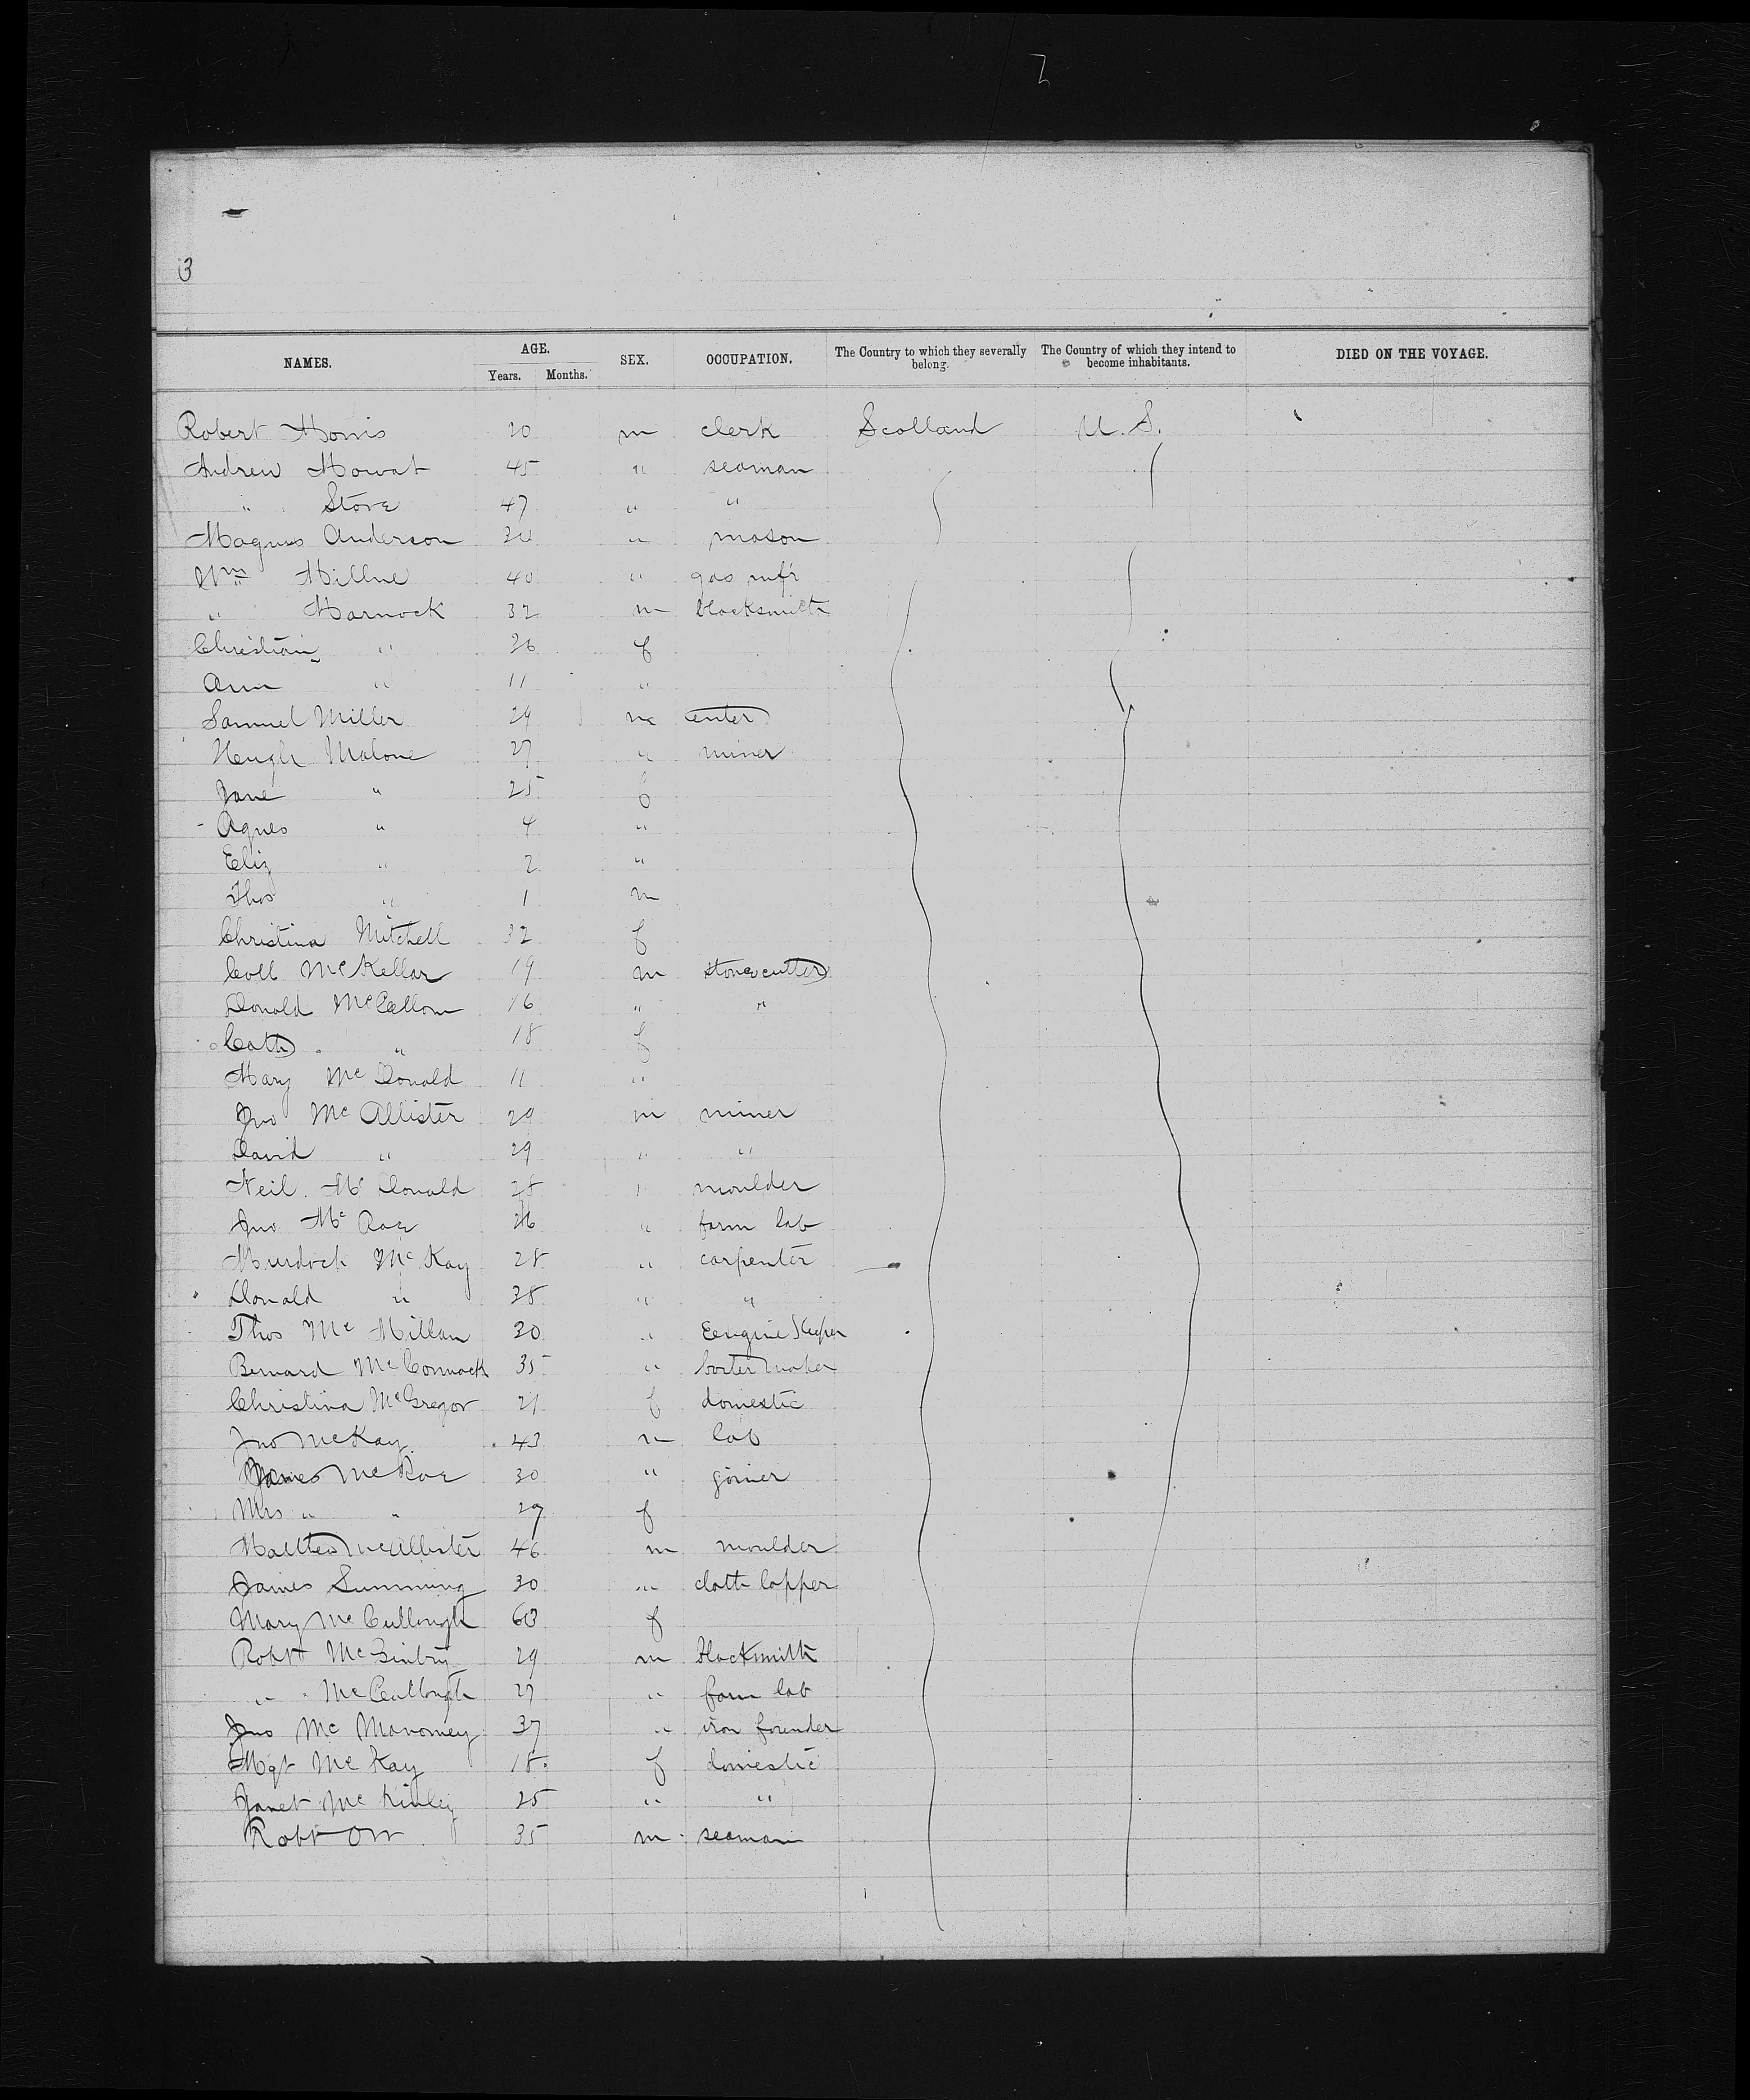 3
NAMES. AGE. Years. Months. SEX. OCCUPATION. The Country to which they severally belong. The Country of which they intend to become inhabitants. DIED ON THE VOYAGE.
Robert Morris 20 m clerk Scotland U. S.
Andrew Mowat 45 " seaman
" Stove 47 " "
Magnus Anderson 20 " mason
Wm Millne 40 " gas mf'r
" Marnock 32 m blacksmith
Christian " 26 f
Ann " 11 "
Samuel Miller 29 m
Heugh Malone 27 " miner
Jane " 25 f
Agnes " 4 "
Eliz " 2 "
Thos " 1 m
Christina Mitchell 32 f
Coll McKellar 19 m stonecutter
Donald McCallom 16 " "
Cath " 18 f
Mary McDonald 11 "
Jno McAllister 29 m miner
David " 29 " "
Neil McDonald 28 " moulder
Jno McRae 26 " farm lab
Murdoch McKay 28 " carpenter
Donald " 38 " "
Thos McMillan 30 " Eengine Keeper
Bernard McCormack 35 " maker
Christina McGregor 21 f domestic
Jno McKay 43 m lab
James McRae 30 " joiner
Mrs " " 29 f
Matthew McAllister 46 m moulder
James Summing 30 " cloth lapper
Mary McCullough 60 f
Robt 29 m blacksmith
" McCullough 27 " farm lab
Jno McMahoney 37 " iron founder
Mgt McKay 18 f domestic
Janet McKinley 25 " "
Robt Orr 35 m seaman